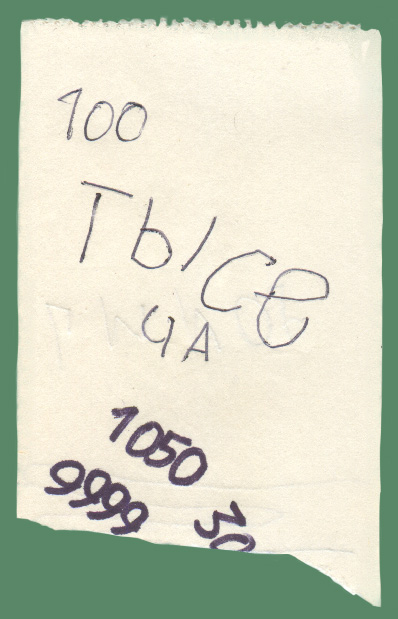 100
ТЫСе
ЧА
1050
9999 30